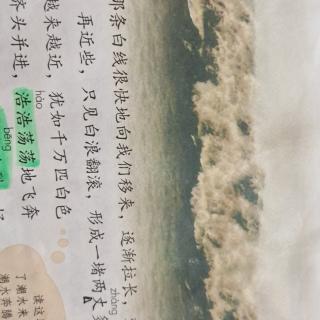 那条白线很快地向我们移来，逐渐拉长，
再近些，只见白浪翻滚，形成一堵两丈
zhàng
越来越近，犹如千万匹白色
hào
齐头并进，浩浩荡荡地飞奔
bēng
读这
了潮水来
潮水奔腾